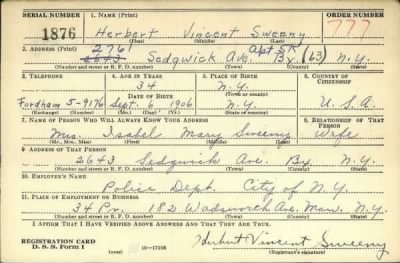 SERIAL NUMBER 1. NAME (Print) ORDER NUMBER
1876 Herbert Vincent Sweeny 777
(First) (Middle) (Last)
2. ADDRESS (Print)
2761 Apt 5K
2643 Sedgwick Ave. Bx. (63) N.Y.
(Number and street or R. F. D. number) (Town) (County) (State)
3. TELEPHONE 4. AGE IN YEARS 5. PLACE OF BIRTH 6. COUNTRY OF CITIZENSHIP
34 N.Y.
(Town or county)
DATE OF BIRTH
Fordham 5-9176 Sept. 6 1906 N.Y. U.S.A.
(Exchange) (Number) (Mo.) (Day) (Yr.) (State or country)
7. NAME OF PERSON WHO WILL ALWAYS KNOW YOUR ADDRESS 8. RELATIONSHIP OF THAT PERSON
Mrs. Isabel Mary Sweeny Wife
(Mr., Mrs., Miss) (First) (Middle) (Last)
9. ADDRESS OF THAT PERSON
2643 Sedgwick Ave. Bx. N.Y.
(Number and street or R. F. D. number) (Town) (County) (State)
10. EMPLOYER'S NAME
Police Dept. City of N.Y.
11. PLACE OF EMPLOYMENT OR BUSINESS
34 Pr. 182 Wadsworth Ave. Man. N.Y.
(Number and street or R. F. D. number) (Town) (County) (State)
I AFFIRM THAT I HAVE VERIFIED ABOVE ANSWERS AND THAT THEY ARE TRUE.
REGISTRATION CARD
D. S. S. Form 1 (over) 16—17105 Herbert Vincent Sweeny
(Registrant's signature)